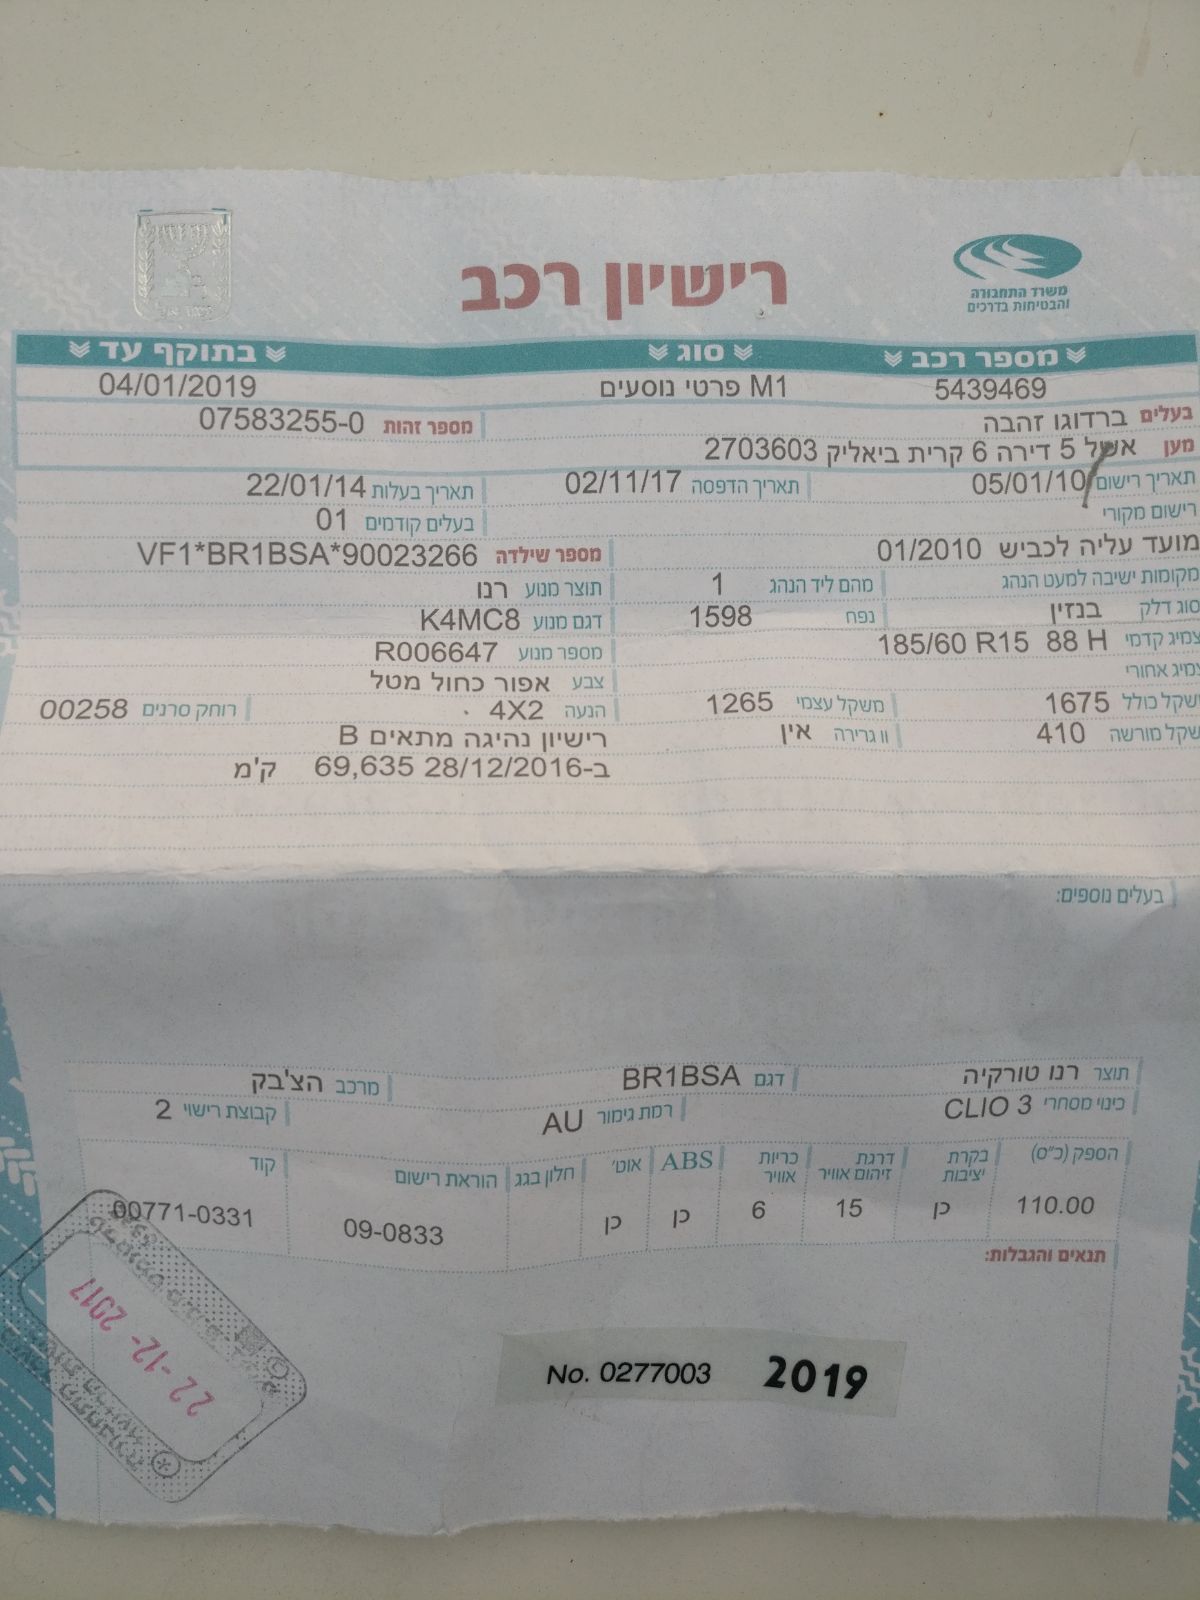 משרד התחבורה
והבטיחות בדרכים
רישיון רכב
מספר רכב סוג בתוקף עד
5439469 M1 פרטי נוסעים 04/01/2019
בעלים ברדוגו זהבה מספר זהות 07583255-0
מען אשל 5 דירה 6 קרית ביאליק 2703603
תאריך רישום 05/01/10 תאריך הדפסה 02/11/17 תאריך בעלות 22/01/14
רישום מקורי בעלים קודמים 01
מועד עליה לכביש 01/2010 מספר שילדה VF1*BR1BSA*90023266
מקומות ישיבה למעט הנהג מהם ליד הנהג 1 תוצר מנוע רנו
סוג דלק בנזין נפח 1598 דגם מנוע K4MC8
צמיג קדמי 185/60 R15 88 H מספר מנוע R006647
צמיג אחורי צבע אפור כחול מטל
שקל כולל 1675 משקל עצמי 1265 הנעה 4X2 רוחק סרנים 00258
שקל מורשה 410 וו גרירה אין רישיון נהיגה מתאים B
ב-28/12/2016 69,635 ק'מ
בעלים נוספים:
תוצר רנו טורקיה דגם BR1BSA מרכב הצ'בק
כינוי מסחרי CLIO 3 רמת גימור AU קבוצת רישוי 2
הספק (כ"ס) בקרת יציבות דרגת זיהום אוויר כריות אוויר ABS אוט' חלון בגג הוראת רישום קוד
110.00 כן 15 6 כן כן 09-0833 00771-0331
תנאים והגבלות:
22-12-2017
No. 0277003 2019